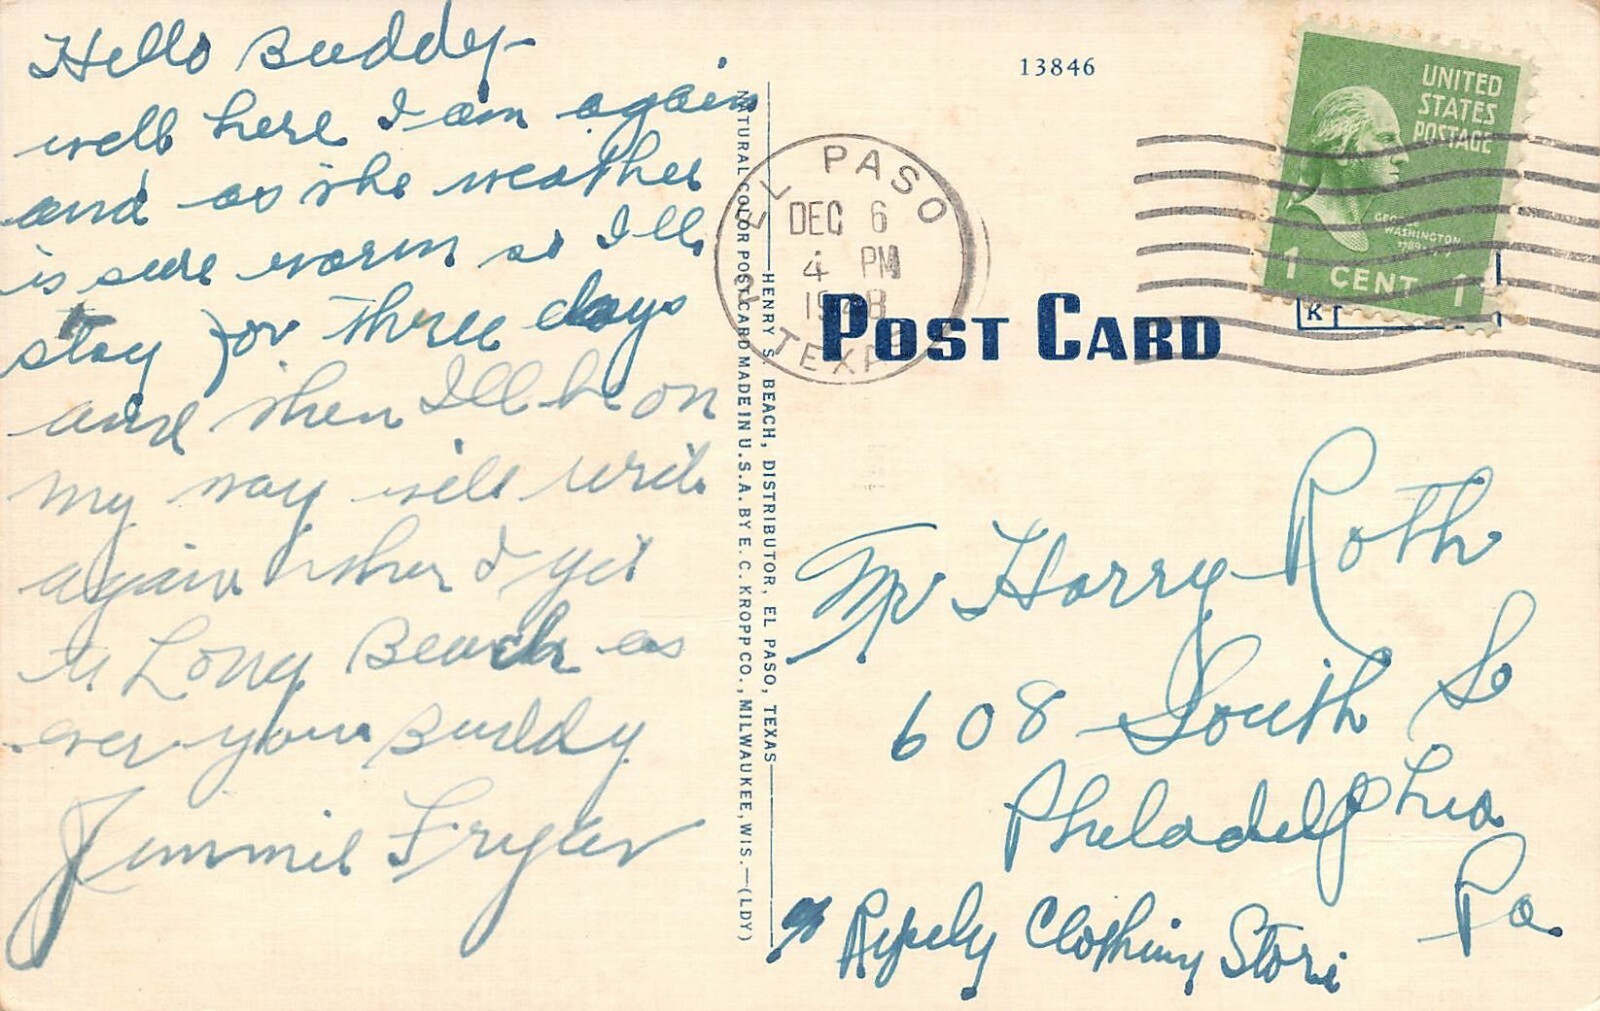 Hello Buddy-
well here I am again
and as the weather
is sure warm so I'll
stay for three days
and then I'll be on
my way will write
again when I get
to Long Beach as
ever your Buddy
Jimmie Fryer
NATURAL COLOR POST CARD MADE IN U.S.A. BY E. C. KROPP CO., MILWAUKEE, WIS.—(LDY)
HENRY S. BEACH, DISTRIBUTOR, EL PASO, TEXAS
13846
UNITED
STATES
POSTAGE
GEORGE
WASHINGTON
1 CENT 1
EL PASO
DEC 6
4 PM
1948
TEXAS
POST CARD
K
Mr Harry Roth
608 South St
Pheladelphia
Pa.
% Clothing Store